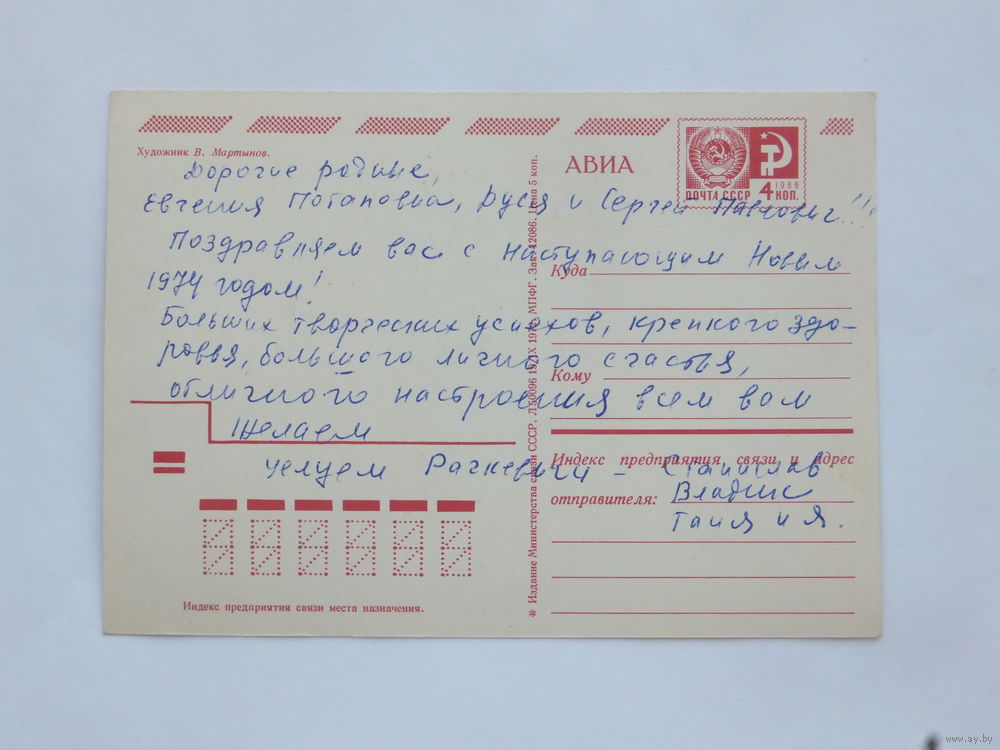 Художник В. Мартынов.
АВИА
ПОЧТА СССР 4 КОП.
1966
Дорогие родные,
Евгения Потаповна, Дуся и Сергей Павлович!!!
Поздравляем вас с наступающим Новым
1974 годом!
Больших творческих успехов, крепкого здо-
ровья, большого личного счастья,
отличного настроения всем вам
желаем
целуем Рачкевичи – Станислав
Владис
Таня и я.
Куда
Кому
Индекс предприятия связи и адрес
отправителя:
Индекс предприятия связи места назначения.
* Издание Министерства связи СССР. Л 50096 19/IX 1973. МПФГ. Зак. 12086. Цена 5 коп.
www.ay.by